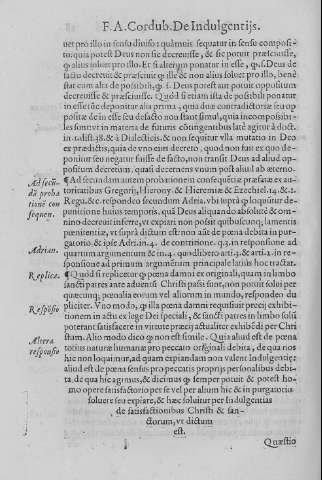 F. A. Cordub. De Indulgentijs.
uet pro illo in sensu diuiso: quãmuis sequatur in sensu composi-
to. quia potest Deus non sic decreuisse, & sic potuit præsciuisse,
ꝙ alius soluet pro illo. Et si alterum ponatur in esse, ꝙ. s. Deus de
facto decreuit & præsciuit ꝙ ille & non alius soluet pro illo, benè
stat cum alia de possibili, ꝙ. s. Deus potest aut potuit oppositum
decreuisse & præsciuisse. Quòd si etiam illa de possibili ponatur
in esse tũc deponitur alia prima, quia duæ contradictoriæ seu op
positæ de in esse seu de facto non stant simul, quia incompossibi-
les sunt
in 1. dist. 38. & à Dialecticis. & non sequitur vlla mutatio in Deo
ex prædictis, quia de vno eius decreto, quod non sit ex quo de-
ponitur seu negatur fuisse de facto, non transit Deus ad aliud op-
positum decretum, quasi decernens vnum post aliud ab æterno.
Ad secun-
dã proba
tionẽ con
sequen.
¶ Ad secundam autem probationem consequẽtiæ præfatæ ex au-
toritatibus Gregorij, Hierony. & Hieremiæ & Ezechiel. 14. & 2.
Regũ. & c. respondeo secundum Adria. vbi suprà ꝙ loquũtur de
punitione huius temporis, quã Deus aliquando absolutè & om-
nino decreuit inducere, vt expedit non posito quibuscunq; lamentis
pœnitentiæ, vt suprà dictum est: non aũt de pœna debita in pur-
Adrian.
gatorio. & ipse Adri. in. 4. de contritione. q. 3. in responsione ad
quartum argumentum & in. 4. quodlibeto arti. 4. & art. 1. in re-
sponsione ad primum argumentum principale latius hoc tractat.
Replica.
¶ Quòd si replicetur ꝙ pœna damni ex originali, quam in limbo
sancti patres ante aduentũ Christi passi sunt, non potuit solui per
quæcunq; pœnalia eorum vel aliorum in mundo, respondeo du
Respõsio
pliciter. Vno modo, ꝙ illa pœna damni requisiuit preciũ exhibi-
tionem in actu ex lege Dei speciali, & sancti patres in limbo solũ
poterant satisfacere in virtute præcij actualiter exhibẽdi per Chri
Altera
responsio
stum. Alio modo dico ꝙ non est simile. Quia aliud est de pœna
totius naturæ humanæ pro peccato originali debita, de qua nos
hic non loquimur, ad quam expiandam non valent Indulgentiæ:
aliud est de pœna sensus pro peccatis proprijs personalibus debi-
ta, de qua hic agimus, & dicimus ꝙ semper potuit & potest ho-
mo opere satisfactorio per se vel per alium hic & in purgatorio
soluere seu expiare, & hæc soluitur per Indulgentias
de satisfactionibus Christi & san-
ctorum, vt dictum
est.
Quæstio